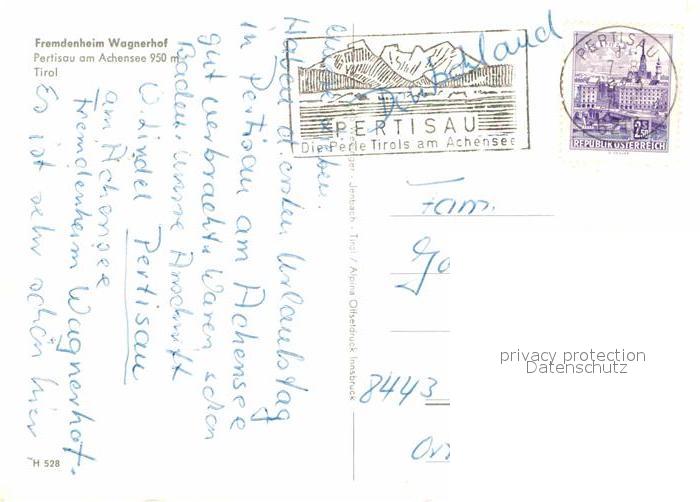 Fremdenheim Wagnerhof
Pertisau am Achensee 950 m
Tirol
Haben d. ersten Urlaubstag
in Pertisau am Achensee
gut verbracht. Waren schon
Baden. Unsere Anschrift
Pertisau
am Achensee
Fremdenheim Wagnerhof.
Es ist sehr schön hier
H 528
PERTISAU
Die Perle Tirols am Achensee
Deutschland
PERTISAU
2.50
REPUBLIK ÖSTERREICH
Jenbach - Tirol / Alpina Offsetdruck Innsbruck
Fam.
8443
privacy protection
Datenschutz